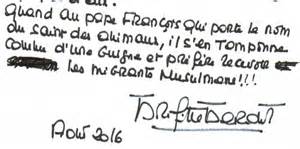 Quand au pape François qui porte le nom
du saint des animaux, il s'en tamponne
comme d'une guigne et préfère recevoir
les migrants musulmans!!!
Août 2016